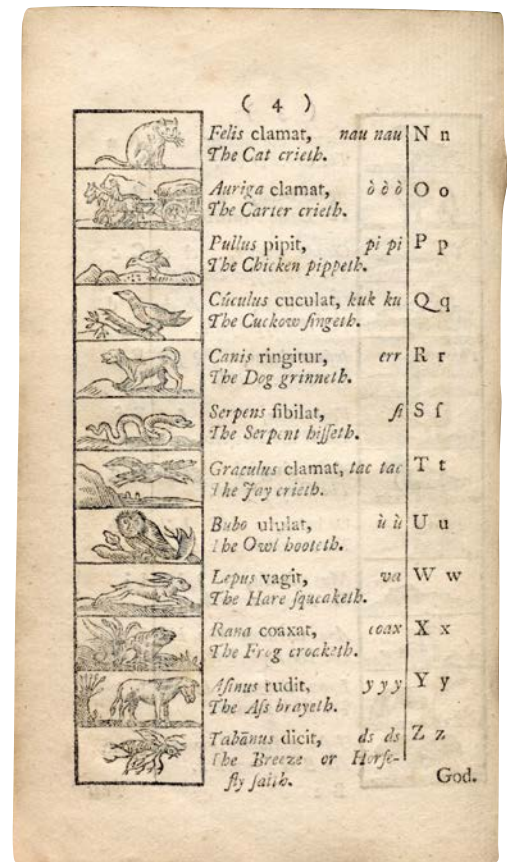 ( 4 )
Felis clamat, nau nau N n
The Cat crieth.
Auriga clamat, ò ò ò O o
The Carter crieth.
Pullus pipit, pi pi P p
The Chicken pippeth.
Cúculus cuculat, kuk ku Q q
The Cuckow ſingeth.
Canis ringitur, err R r
The Dog grinneth.
Serpens ſibilat, ſi S ſ
The Serpent hiſſeth.
Graculus clamat, tac tac T t
The Jay crieth.
Bubo ululat, ù ù U u
The Owl hooteth.
Lepus vagit, va W w
The Hare ſqueaketh.
Rana coaxat, coax X x
The Frog crocketh.
Aſinus rudit, y y y Y y
The Aſs brayeth.
Tabānus dicit, ds ds Z z
The Breeze or Horſe-
fly ſaith.
God.